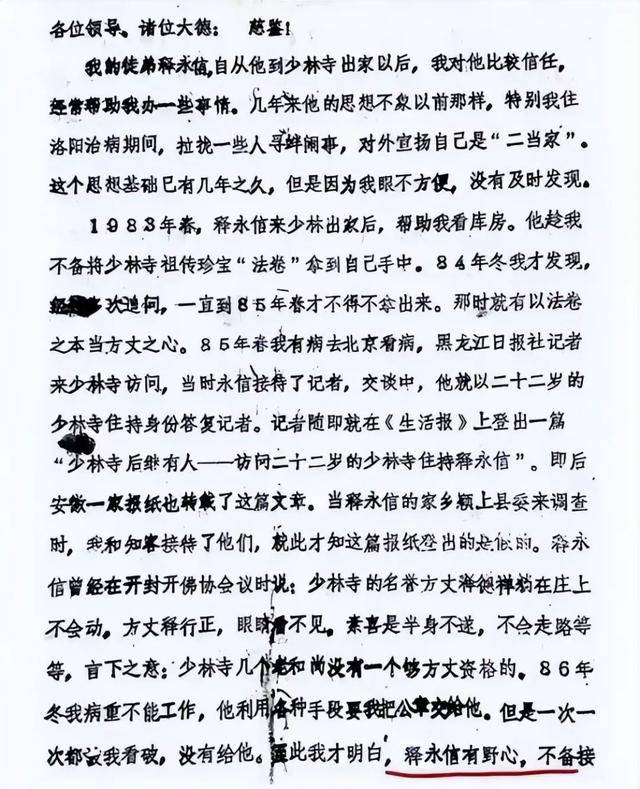 各位领导。诸位大德：　慈鉴！
我的徒弟释永信，自从他到少林寺出家以后，我对他比较信任，
经常帮助我办一些事情。几年来他的思想不象以前那样，特别我住
洛阳治病期间，拉拢一些人寻衅闹事，对外宣扬自己是“二当家”。
这个思想基础已有几年之久，但是因为我眼不方便，没有及时发现。
1983年春，释永信来少林出家后，帮助我看库房。他趁我
不备将少林寺祖传珍宝“法卷”拿到自己手中。84年冬我才发现，
次追问，一直到85年春才不得不拿出来。那时就有以法卷
之本当方丈之心。85年春我有病去北京看病，黑龙江日报社记者
来少林寺访问，当时永信接待了记者，交谈中，他就以二十二岁的
少林寺住持身份答复记者。记者随即就在《生活报》上登出一篇
“少林寺后继有人——访问二十二岁的少林寺住持释永信”。即后
安徽一家报纸也转载了这篇文章。当释永信的家乡颍上县委来调查
时，我和知客接待了他们，就此才知这篇报纸登出的是假的。释永
信曾经在开封开佛协会议时说：少林寺的名誉方丈释德禅躺在庄上
不会动。方丈释行正，眼睛看不见。素喜是半身不遂，不会走路等
等，言下之意：少林寺几个老和尚没有一个够方丈资格的。86年
冬我病重不能工作，他利用各种手段要我把公章交给他。但是一次一
次都被我看破，没有给他。至此我才明白，释永信有野心，不备接